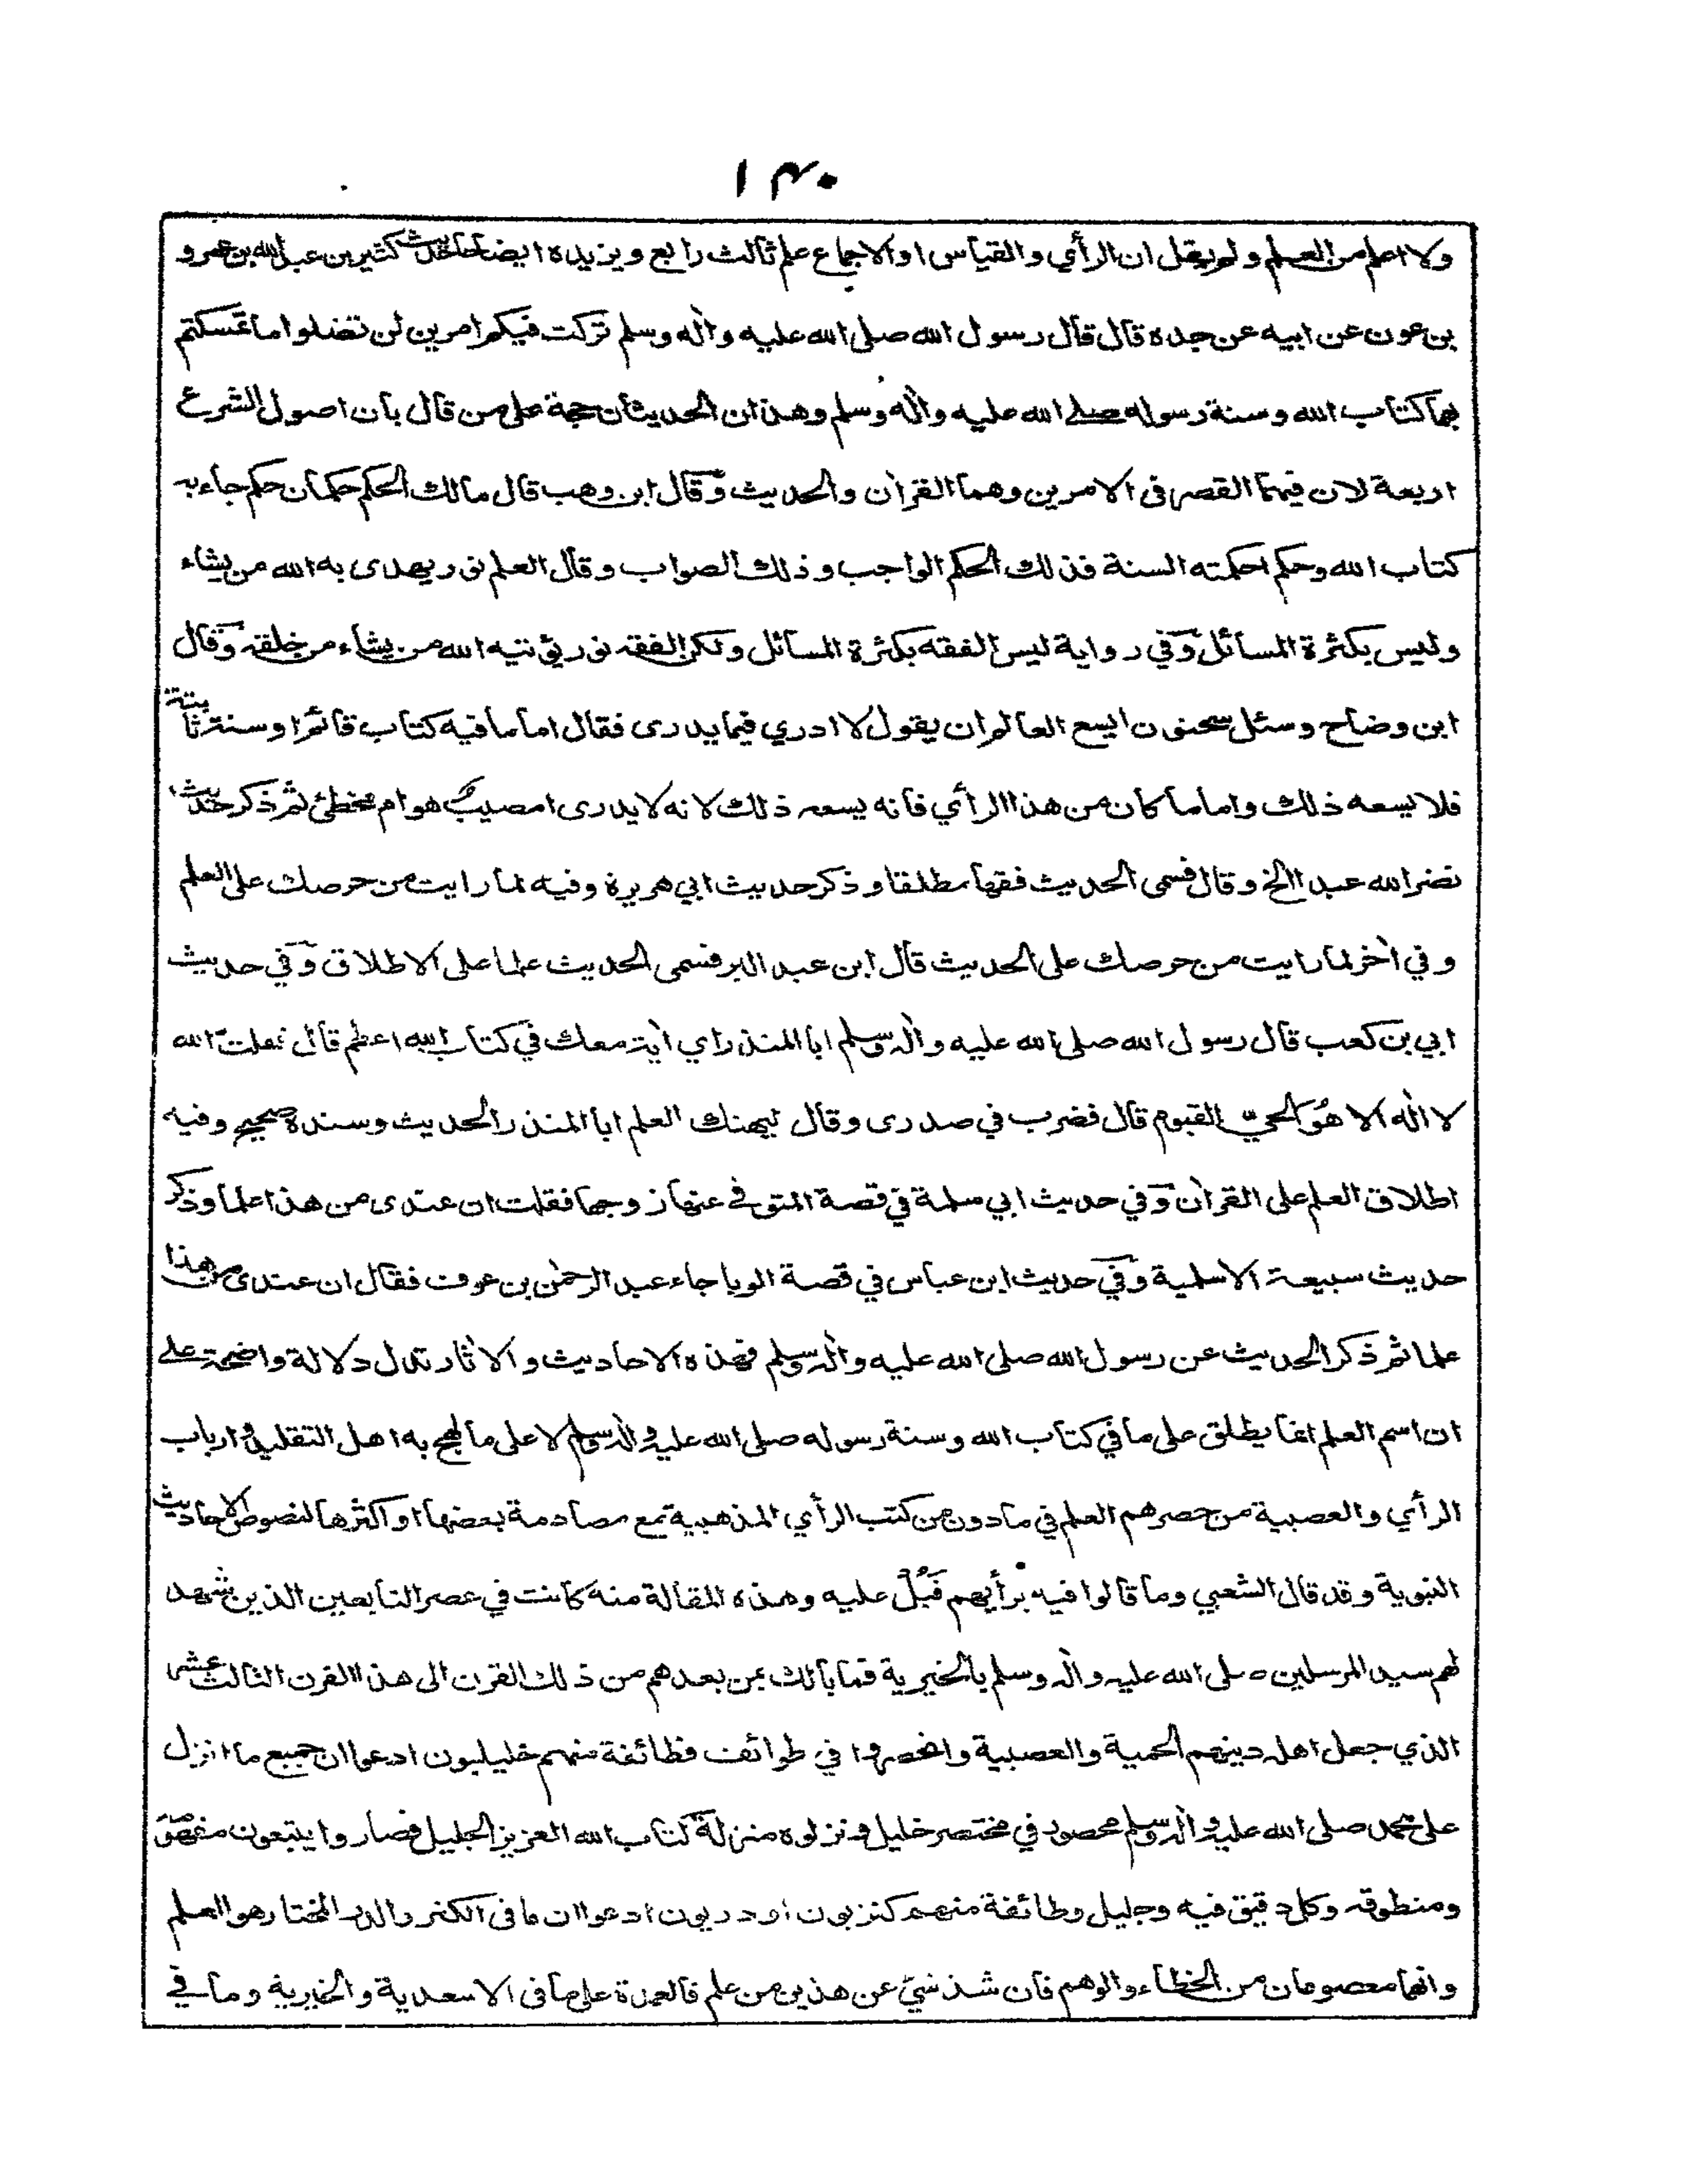 ١٣٠
ولا اعلم من العلم ولم يقل ان الرأي والقياس او الاجماع علم ثالث رابع ويزيده ايضاحا حديث كثير بن عبد الله بن عمرو
بن عون عن ابيه عن جده قال قال رسول الله صلى الله عليه واله وسلم تركت فيكم امرين لن تضلوا ما تمسكتم
بهما كتاب الله وسنة رسوله صلى الله عليه واله وسلم وهذان الحديثان حجة على من قال بان اصول الشرع
اربعة لان فيهما القصر فى الامرين وهما القران والحديث وقال ابن وهب قال مالك الحكم حكمان حكم جاء به
كتاب الله وحكم احكمته السنة فذلك الحكم الواجب وذلك الصواب وقال العلم نور يهدى به الله من يشاء
وليس بكثرة المسائل وفي رواية ليس الفقه بكثرة المسائل ولكن الفقه نور يؤتيه الله من يشاء من خلقه وقال
ابن وضاح وسئل سحنون ايسع العالم ان يقول لا ادري فيما يدرى فقال اما ما فيه كتاب قائم او سنة ثابتة
فلا يسعه ذلك واما ما كان من هذا الرأي فانه يسعه ذلك لانه لا يدرى امصيب هو ام مخطئ ثم ذكر حديث
نضر الله عبدا الخ وقال فسمى الحديث فقها مطلقا وذكر حديث ابي هريرة وفيه لما رايت من حرصك على العلم
وفي اخر لما رايت من حرصك على الحديث قال ابن عبد البر فسمى الحديث علما على الاطلاق وفي حديث
ابي بن كعب قال رسول الله صلى الله عليه واله وسلم ابا المنذر اي اية معك في كتاب الله اعظم قال فقلت الله
لا اله الا هو الحي القيوم قال فضرب في صدرى وقال ليهنك العلم ابا المنذر الحديث وسنده صحيح وفيه
اطلاق العلم على القران وفي حديث ابي سلمة في قصة المتوفى عنها زوجها فقلت ان عندى من هذا علما وذكر
حديث سبيعة الاسلمية وفي حديث ابن عباس في قصة الوبا جاء عبد الرحمن بن عوف فقال ان عندى من هذا
علما ثم ذكر الحديث عن رسول الله صلى الله عليه واله وسلم فهذه الاحاديث والاثار تدل دلالة واضحة على
ان اسم العلم انما يطلق على ما في كتاب الله وسنة رسوله صلى الله عليه واله وسلم لا على ما لهج به اهل التقليد وارباب
الرأي والعصبية من حصرهم العلم في ما دون من كتب الرأي المذهبية مع مصادمة بعضها او اكثرها لنصوص الاحاديث
النبوية وقد قال الشعبي وما قالوا فيه برأيهم فَبُلْ عليه وهذه المقالة منه كانت في عصر التابعين الذين شهد
لهم سيد المرسلين صلى الله عليه واله وسلم بالخيرية فما بالك بمن بعدهم من ذلك القرن الى هذا القرن الثالث عشر
الذي جعل اهله دينهم الحمية والعصبية وانحصروا في طوائف فطائفة منهم خليليون ادعوا ان جميع ما انزل
على محمد صلى الله عليه واله وسلم محصور في مختصر خليل ونزلوه منزلة كتاب الله العزيز الجليل فصاروا يتبعون مفهومه
ومنطوقه وكل دقيق فيه وجليل وطائفة منهم كنزيون او دريون ادعوا ان ما فى الكنز والدر المختار هو العلم
وانهما معصومان من الخطاء والوهم فان شذ شيّ عن هذين من علم فالعمدة على ما فى الاسعدية والخيرية وما في